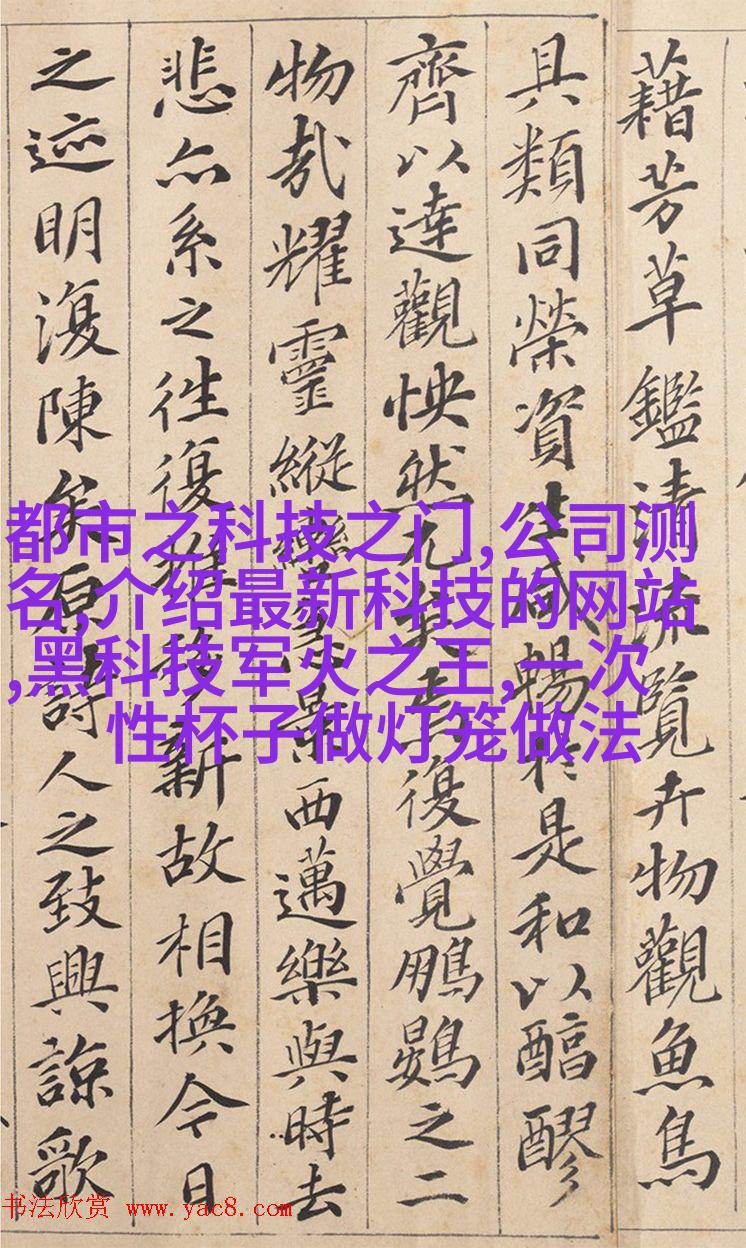 藉芳草鑑清流覽卉物觀魚鳥
具類同榮資生咸暢於是和以醇醪
齊以達觀怏然兀矣焉復覺鵬鷃之二
物哉耀靈縱轡急景西邁樂與時去
悲亦系之往復推移新故相換今日
之迹明復陳矣原詩人之致興諒歌
都市之科技之门,公司测
名,介绍最新科技的网站
,黑科技军火之王,一次
性杯子做灯笼做法
书法欣赏 www.yac8.com